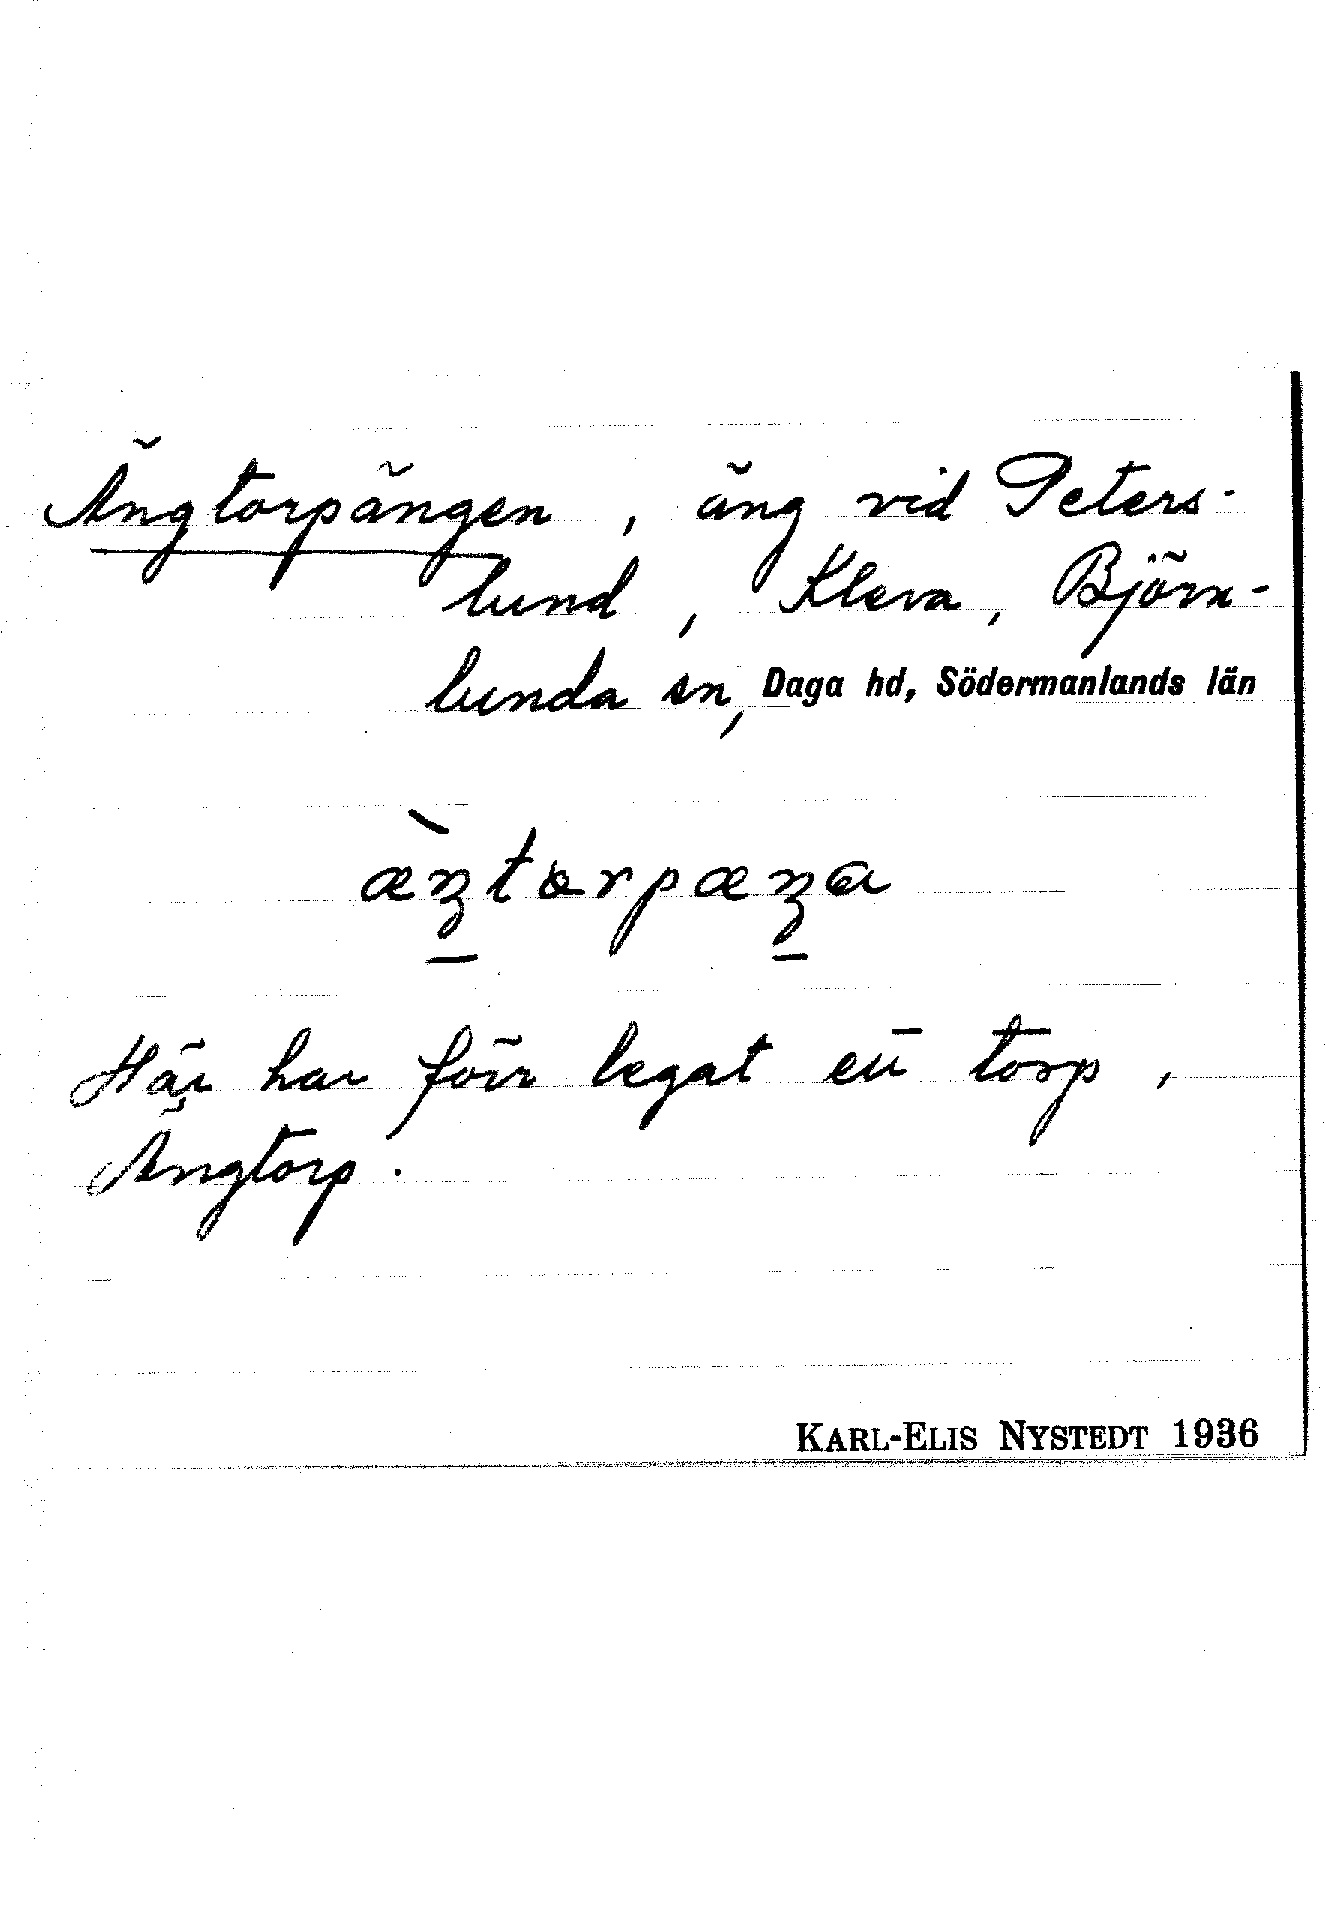 Ängtorpängen, äng vid Peters-
lund, Kleva, Björn-
lunda sn, Daga hd, Södermanlands län
æ̀ŋtorpæŋa
Här har förr legat ett torp,
Ängtorp.
KARL-ELIS NYSTEDT 1936